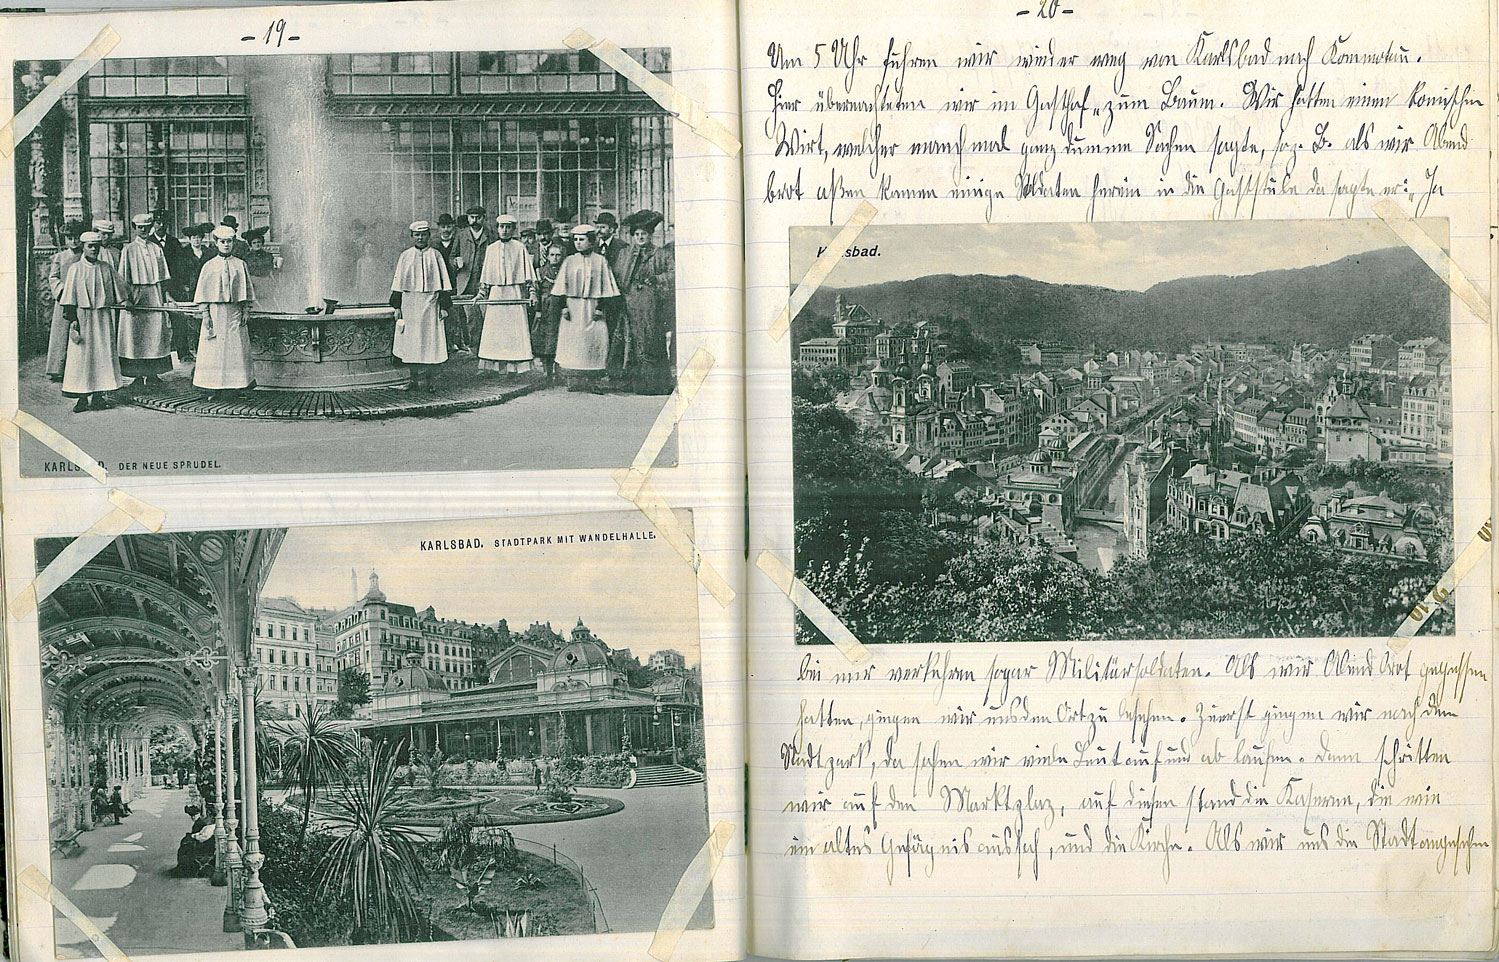 - 19 -
KARLSBAD. DER NEUE SPRUDEL.
KARLSBAD. STADTPARK MIT WANDELHALLE.
- 20 -
Um 5 Uhr fuhren wir wieder weg von Karlsbad nach Kommotau.
Hier übernachteten wir im Gasthof „zum Baum. Wir hatten einen komischen
Wirt, welcher manchmal ganz dumme Sachen sagte, so z. B. als wir Abend
brot aßen kamen einige Soldaten herein in die Gaststube da sagte er: „Ja
Karlsbad.
bei mir verkehren sogar Militärsoldaten. Als wir Abend Brot gegessen
hatten, gingen wir uns den Ort zu besehen. Zuerst gingen wir nach dem
Stadtpark, da sahen wir viele Leut auf und ab laufen. Dann schritten
wir auf den Marktplaz, auf diesen stand die Kaserne, die wie
ein altes Gefägnis aussah, und die Kirche. Als wir uns die Stadt angesehen